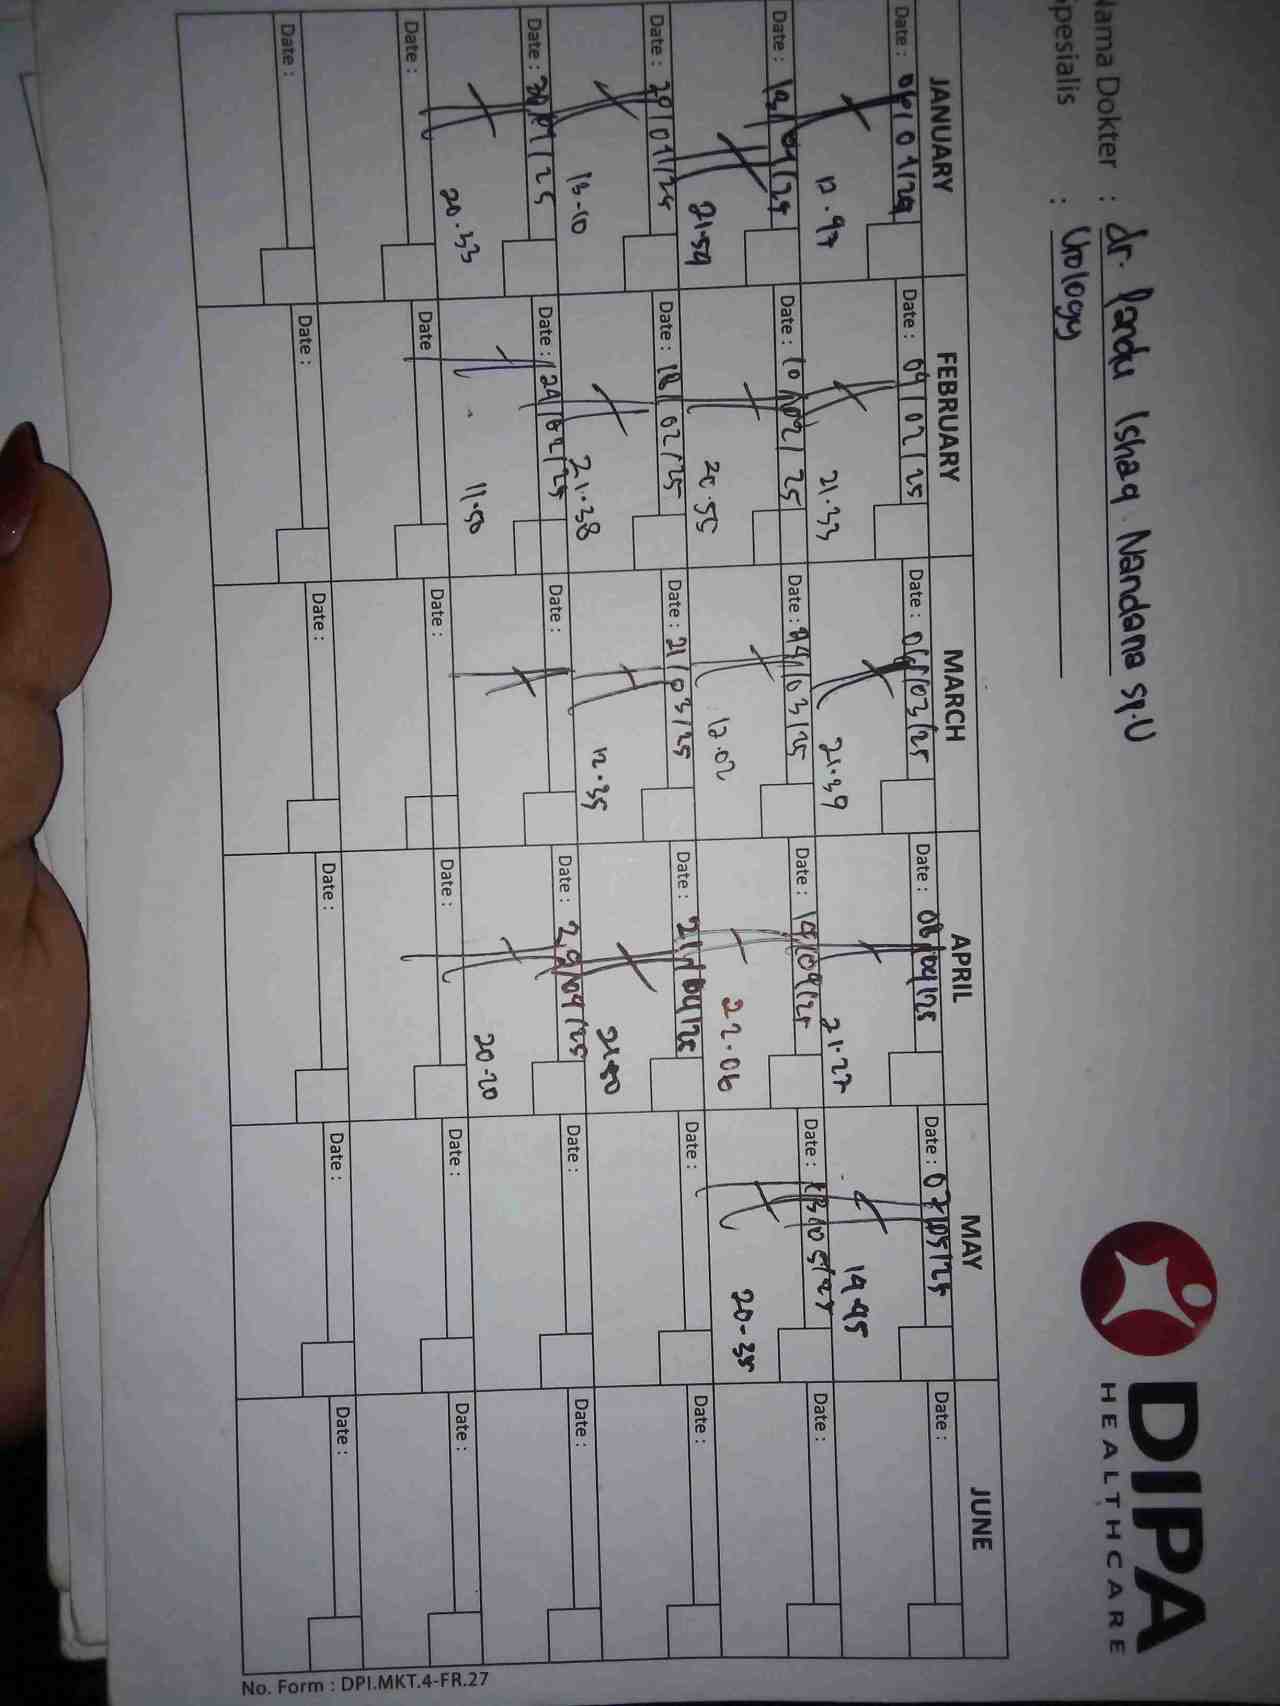 Nama Dokter : dr. Pandu Ishaq Nandana Sp.U
Spesialis : Urology
DIPA
HEALTHCARE
JANUARY FEBRUARY MARCH APRIL MAY JUNE
Date : 06/01/25 Date : 04/02/25 Date : 06/03/25 Date : 08/04/25 Date : 07/05/25 Date :
12.47 21.33 21.39 21.27 19.45
Date : 13/01/25 Date : 10/02/25 Date : 14/03/25 Date : 14/04/25 Date : 13/05/25 Date :
21.54 20.55 12.02 22.06 20-35
Date : 20/01/25 Date : 18/02/25 Date : 21/03/25 Date : 21/04/25 Date : Date :
13-10 21.38 12.35 21.50
Date : 30/01/25 Date : 24/02/25 Date : Date : 29/04/25 Date : Date :
20.33 11.50 20-20
Date : Date Date : Date : Date : Date :
Date : Date : Date : Date : Date : Date :
No. Form : DPI.MKT.4-FR.27